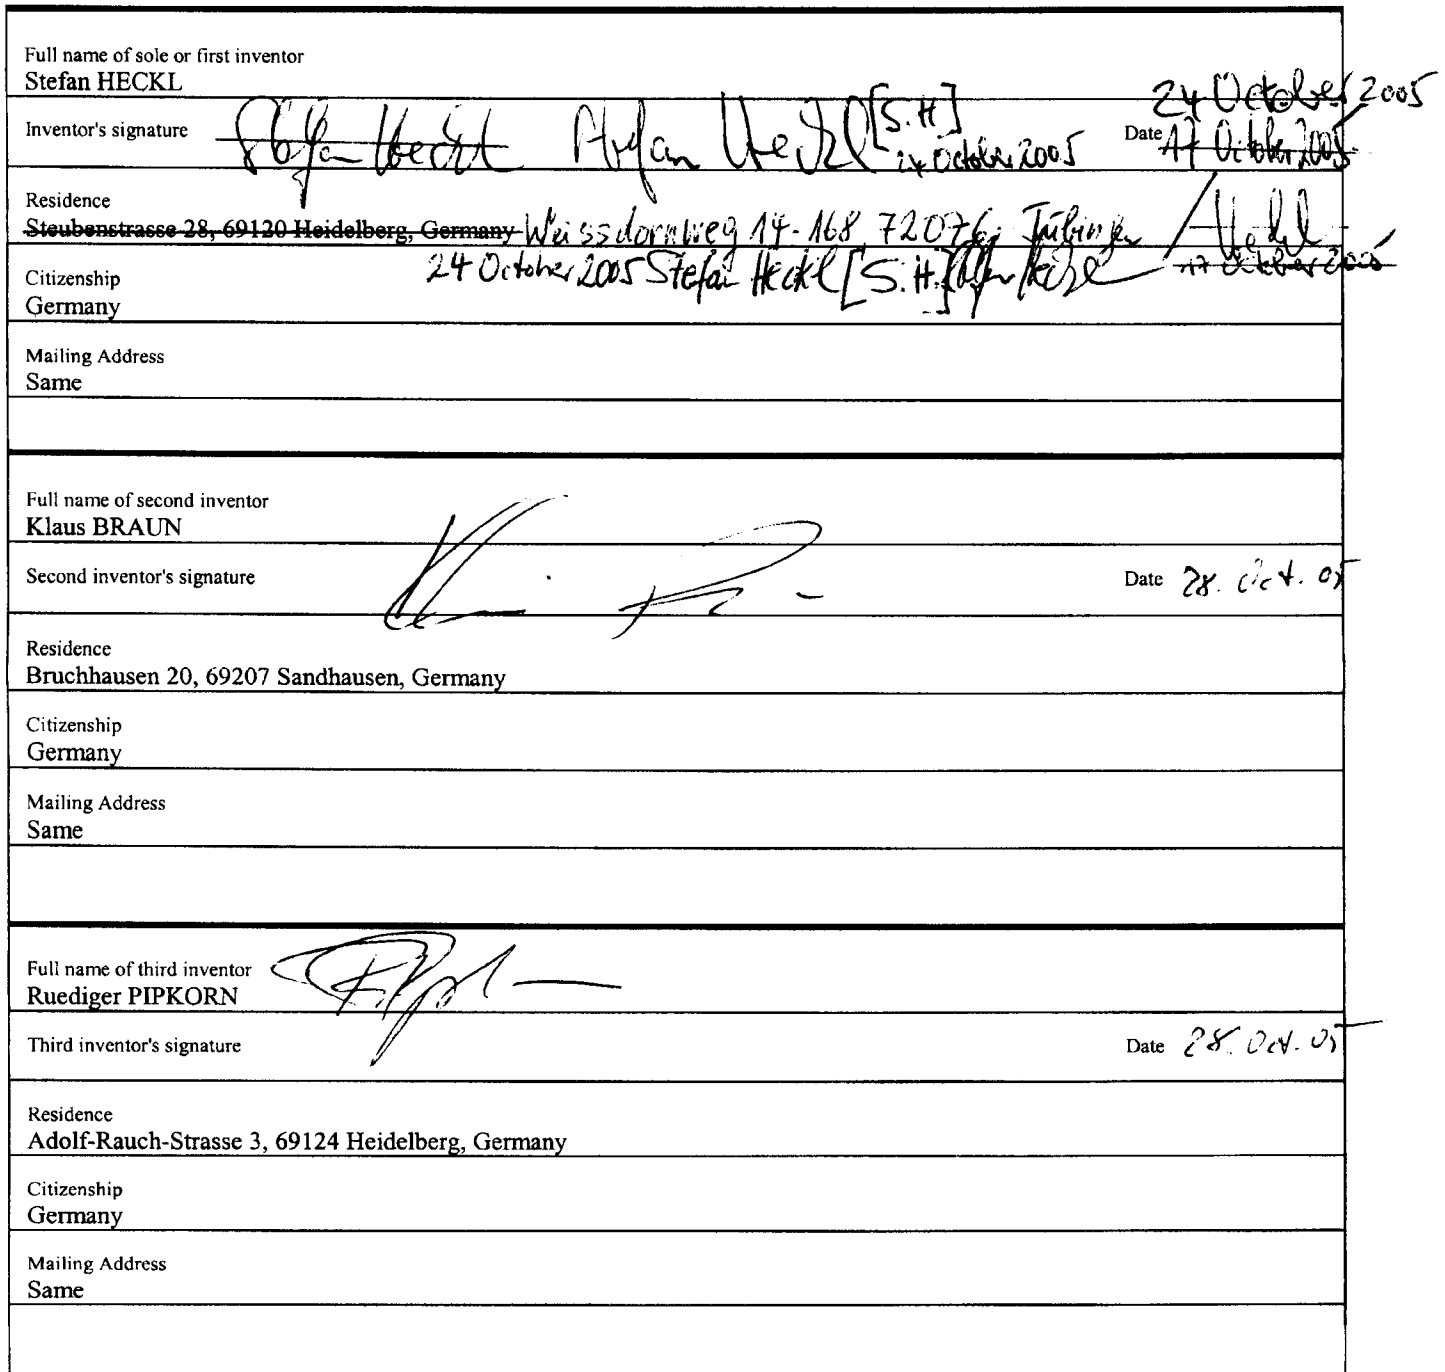 Full name of sole or first inventor
Stefan HECKL
24 October 2005
Inventor's signature Stefan Heckl Stefan Heckl [S.H] 24 October 2005 Date 17 October 2005
Residence
Steubenstrasse 28, 69120 Heidelberg, Germany Weissdornweg 14-168, 72076 Tübingen / Heckl
17 October 2005
24 October 2005 Stefan Heckl [S.H.] Stefan Heckl
Citizenship
Germany
Mailing Address
Same
Full name of second inventor
Klaus BRAUN
Second inventor's signature Date 28. Oct. 05
Residence
Bruchhausen 20, 69207 Sandhausen, Germany
Citizenship
Germany
Mailing Address
Same
Full name of third inventor
Ruediger PIPKORN
Third inventor's signature Date 28. Oct. 05
Residence
Adolf-Rauch-Strasse 3, 69124 Heidelberg, Germany
Citizenship
Germany
Mailing Address
Same